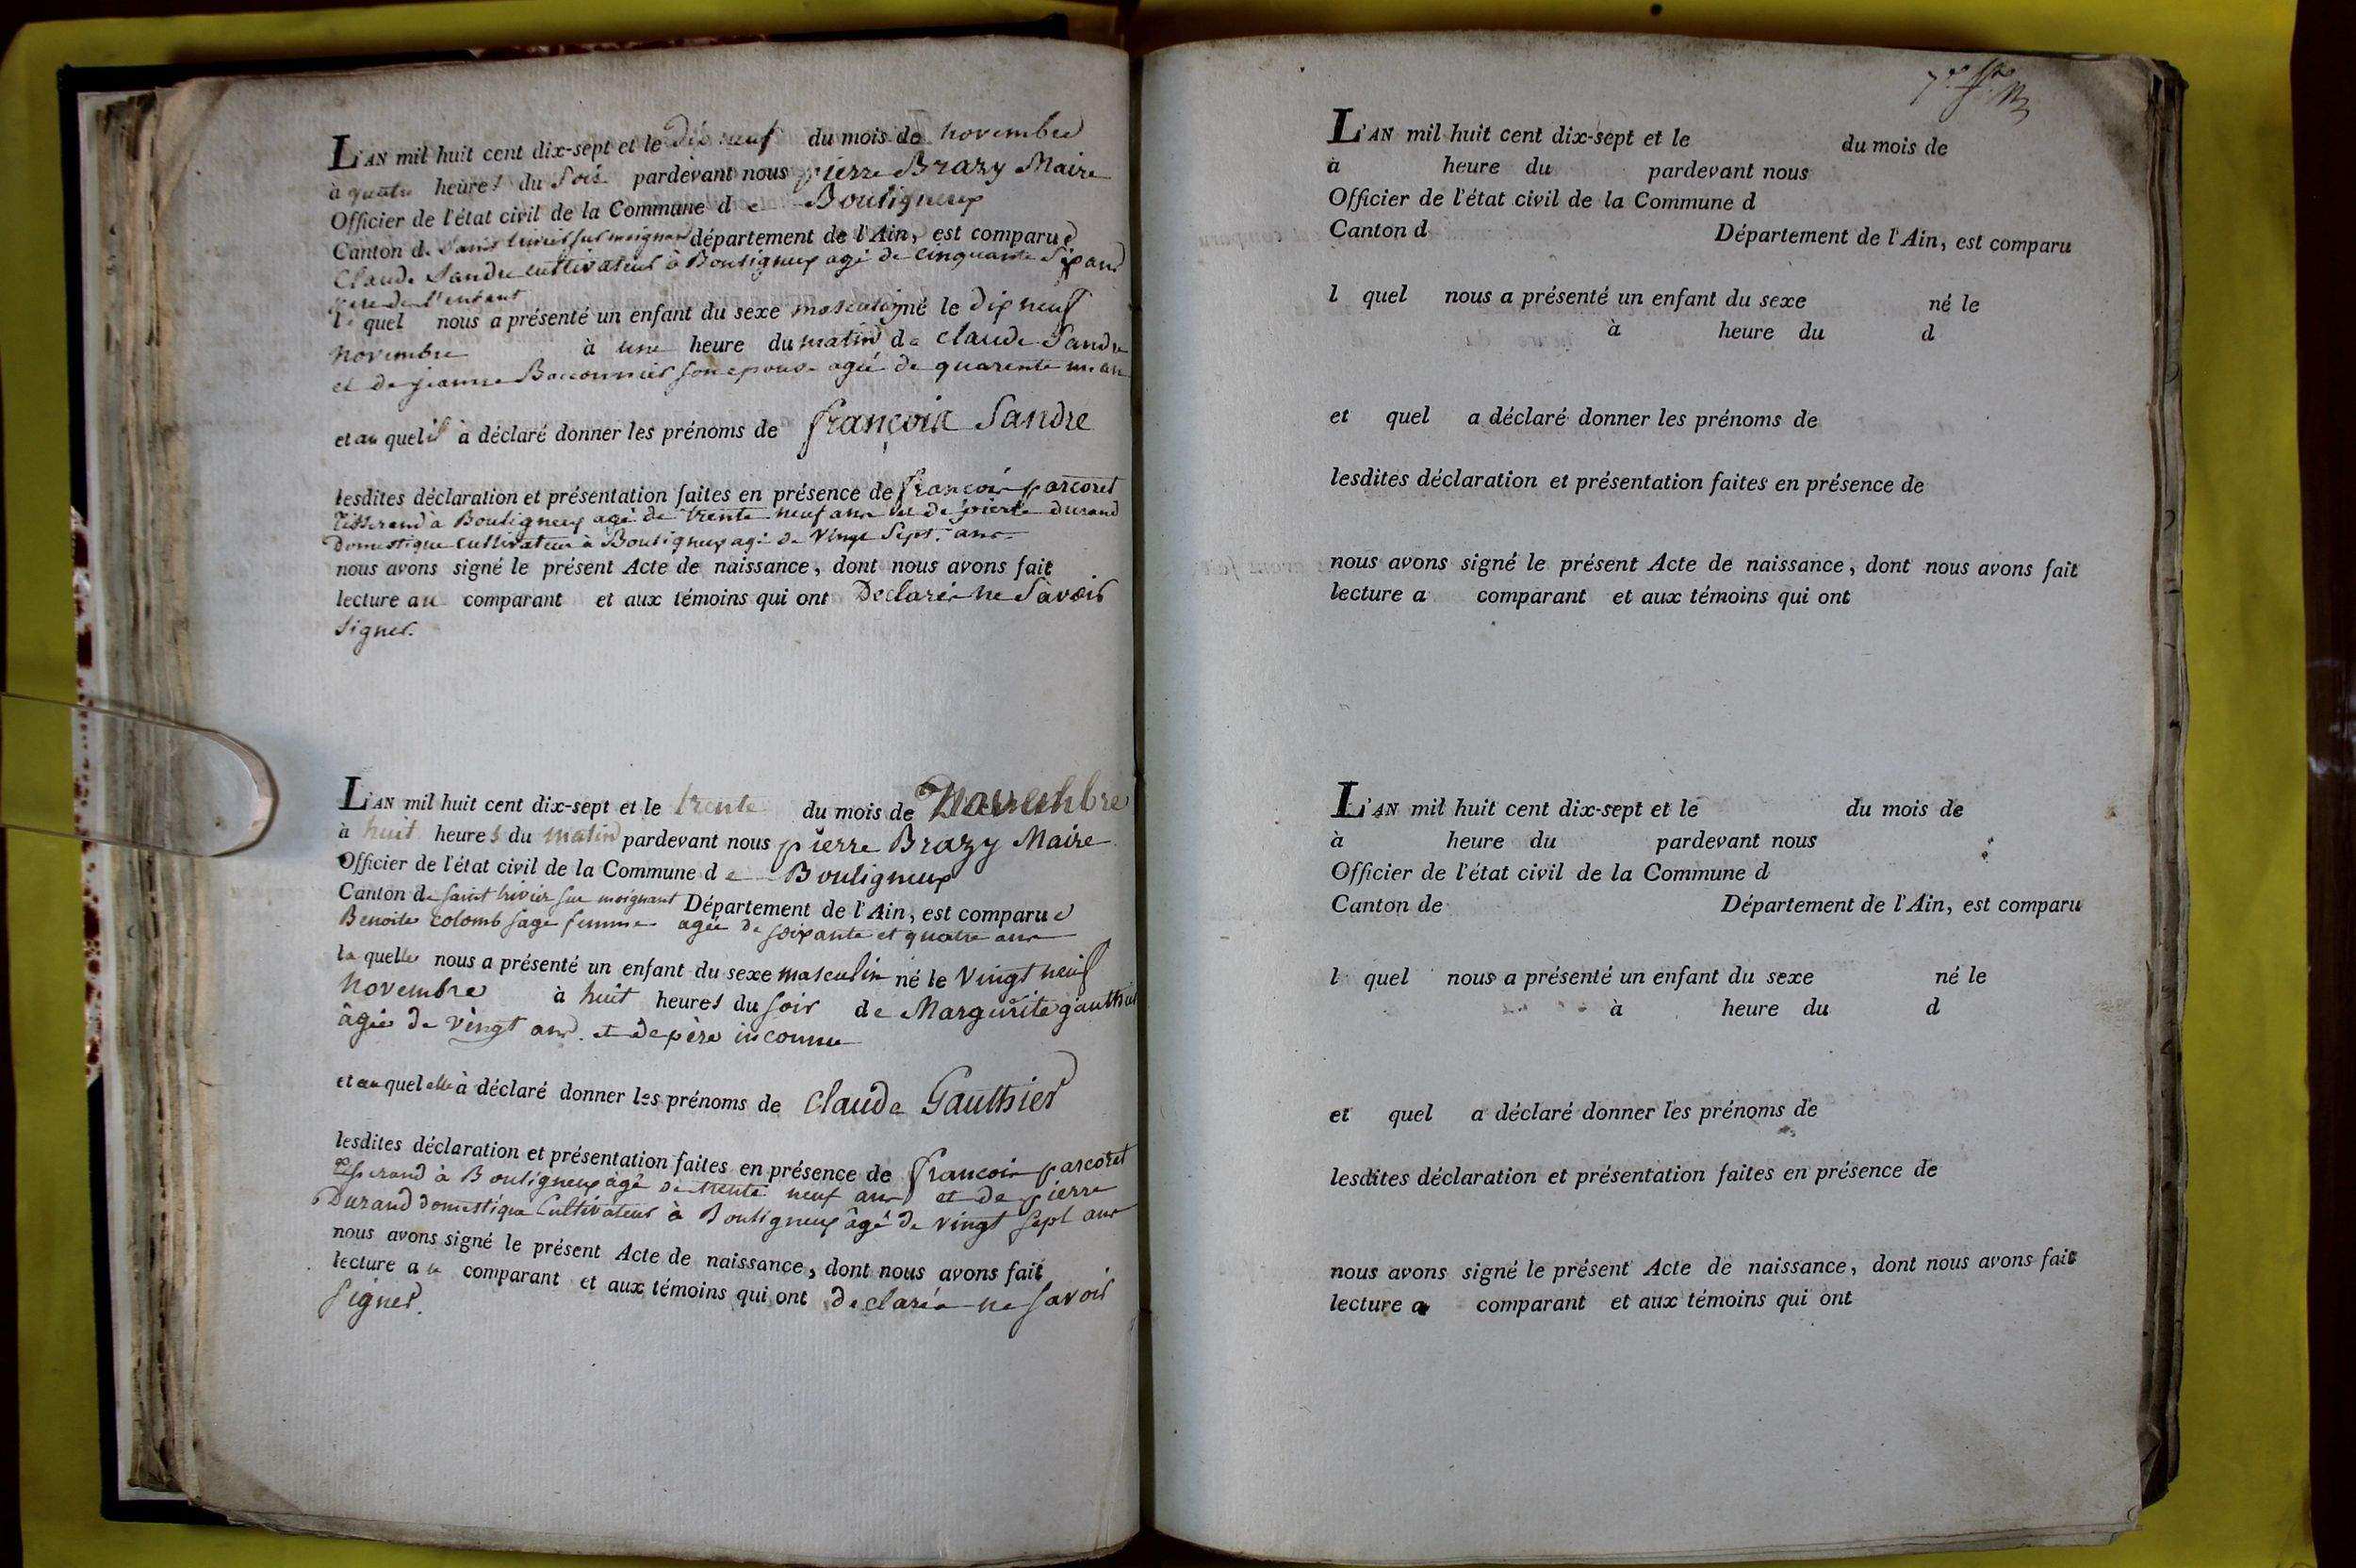 L'AN mil huit cent dix-sept et le dix neuf du mois de novembre
à quatre heures du Soir pardevant nous pierre Brazy Maire
Officier de l'état civil de la Commune de Bouligneux
Canton de Saint trivier sur moignant département de l'Ain, est comparue
Claude Sandre cultivateur à Bouligneux agé de Cinquante Six ans
pere de l'enfant
le quel nous a présenté un enfant du sexe masculin né le dix neuf
novembre à une heure du matin de Claude Sandre
et de jeanne Bocconnier son epouse agée de quarente un an
et au quel il à déclaré donner les prénoms de françois Sandre
lesdites déclaration et présentation faites en présence de françois parcoret
Tisserand à Bouligneux agé de trente neuf ans et de pierre durand
Domestique Cultivateur à Bouligneux agé de Vingt Sept ans
nous avons signé le présent Acte de naissance, dont nous avons fait
lecture au comparant et aux témoins qui ont Declarés ne Savoir
Signer.
L'AN mil huit cent dix-sept et le trente du mois de Novembre
à huit heures du matin pardevant nous pierre Brazy Maire
Officier de l'état civil de la Commune de Bouligneux
Canton de saint trivier sur moignant Département de l'Ain, est comparue
Benoite Colomb sage femme agée de soixante et quatre ans
la quelle nous a présenté un enfant du sexe masculin né le Vingt neuf
Novembre à huit heures du soir de Margurite gauthier
âgée de vingt ans et de père inconnu
et au quel elle à déclaré donner les prénoms de Claude Gauthier
lesdites déclaration et présentation faites en présence de francois parcoret
Tisserand à Bouligneux âgé de trente neuf ans et de pierre
Durand domestique Cultivateur à Bouligneux âgé de vingt sept ans
nous avons signé le présent Acte de naissance, dont nous avons fait
lecture au comparant et aux témoins qui ont declarés ne savoir
signer.
L'AN mil huit cent dix-sept et le du mois de
à heure du pardevant nous
Officier de l'état civil de la Commune d
Canton d Département de l'Ain, est comparu
l quel nous a présenté un enfant du sexe né le
à heure du d
et quel a déclaré donner les prénoms de
lesdites déclaration et présentation faites en présence de
nous avons signé le présent Acte de naissance, dont nous avons fait
lecture a comparant et aux témoins qui ont
L'AN mil huit cent dix-sept et le du mois de
à heure du pardevant nous
Officier de l'état civil de la Commune d
Canton de Département de l'Ain, est comparu
l quel nous a présenté un enfant du sexe né le
à heure du d
et quel a déclaré donner les prénoms de
lesdites déclaration et présentation faites en présence de
nous avons signé le présent Acte de naissance, dont nous avons fait
lecture a comparant et aux témoins qui ont